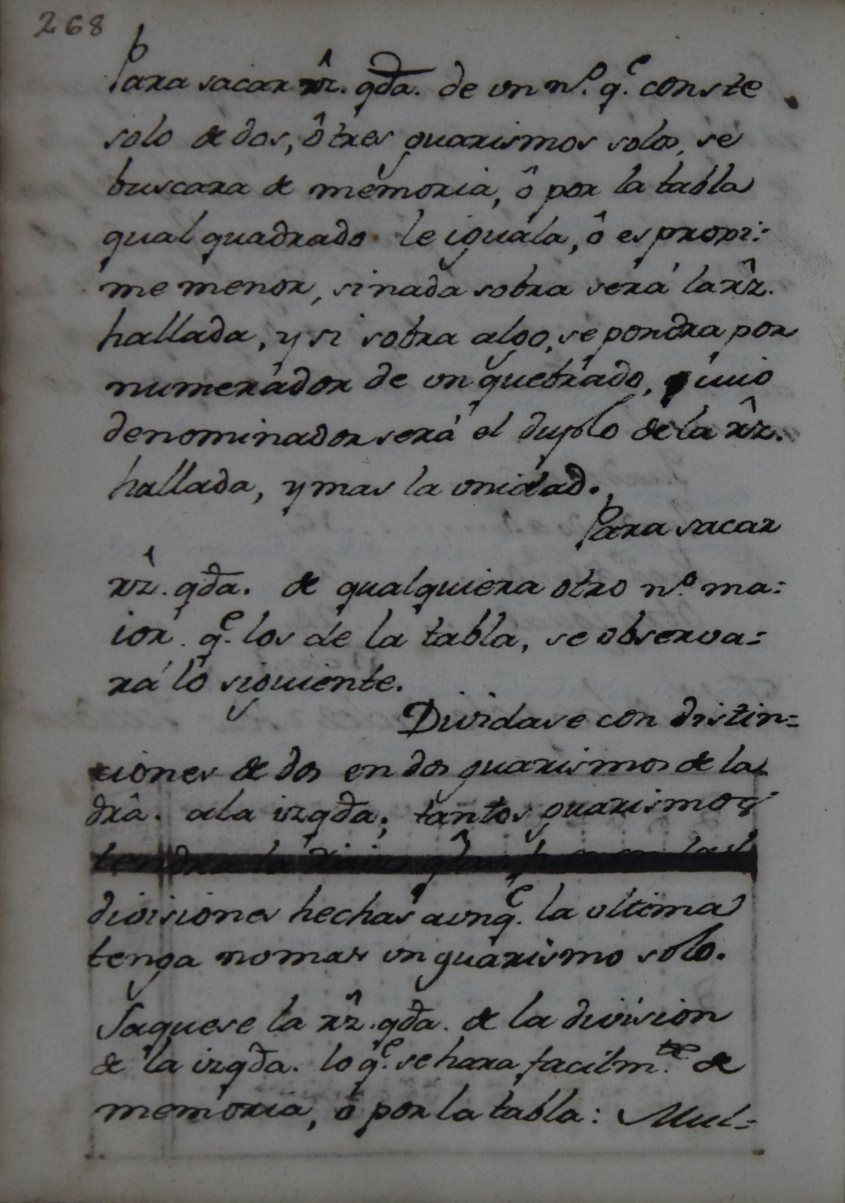 268
Para sacar rz̑. qda. de un n.º q.e conste
solo de dos, ô tres guarismos solos, se
buscara de memoria, ô por la tabla
qual quadrado le iguala, ô es proxi:
me menor, si nada sobra será la rz̑.
hallada, y si sobra algo, se pondra por
numerador de un quebrado, cuio
denominador será el duplo de la rz̑.
hallada, y mas la unidad.
Para sacar
rz̑. qda. de qualquiera otro n.º ma:
ior q.e los de la tabla, se observa:
rá lo siguiente.
Dividase con distin=
ciones de dos en dos guarismos de la
dra. a la izqda; tantos guarismos
tendra la
divisiones hechas aunq.e la ultima
tenga no mas un guarismo solo.
Saquese la rz̑. qda. de la division
de la izqda. lo q.e se hara facilm.te de
memoria, ó por la tabla: Mul-